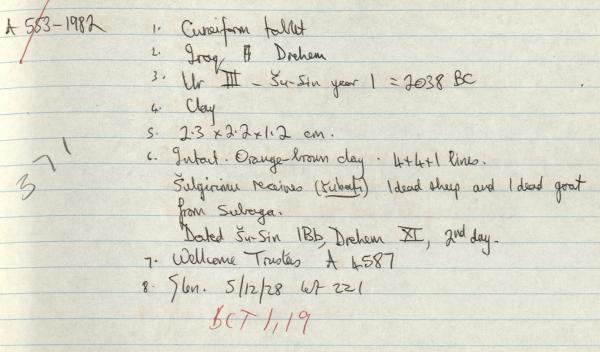 A 553-1982
1. Cuneiform tablet
2. Iraq, Drehem
3. Ur III - Šu-Sin year 1 = 2038 BC
4. Clay
5. 2.3 x 2.2 x 1.2 cm.
6. Intact. Orange-brown clay. 4+4+1 lines.
Šulgirimu receives (šubati) 1 dead sheep and 1 dead goat
from Subaga.
Dated Šu-Sin 1Bb, Drehem XI, 2nd day.
7. Wellcome Trustees A 4587
8. Slen. 5/12/28 lot 221
371
BCT 1, 19